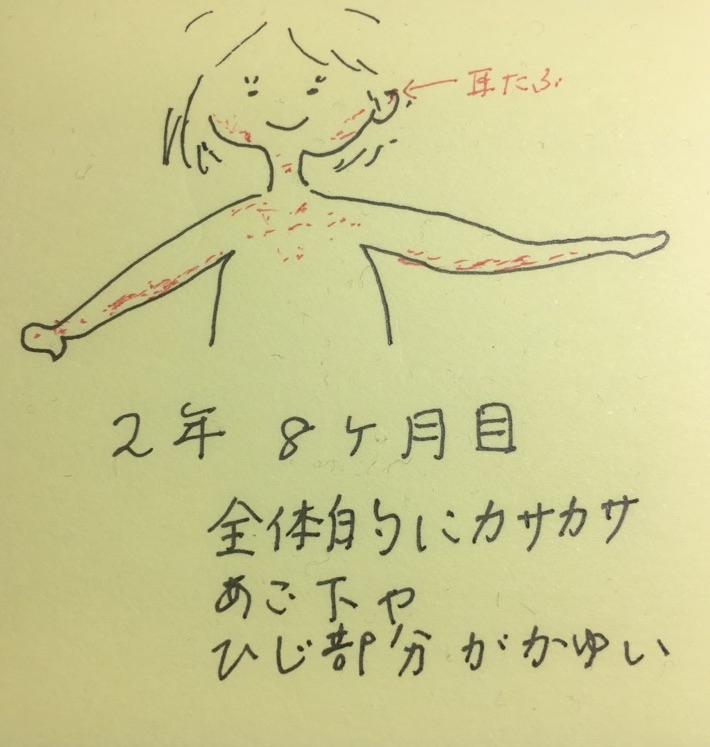 耳たぶ
2年 8ヶ月目
全体的にカサカサ
あご下や
ひじ部分がかゆい